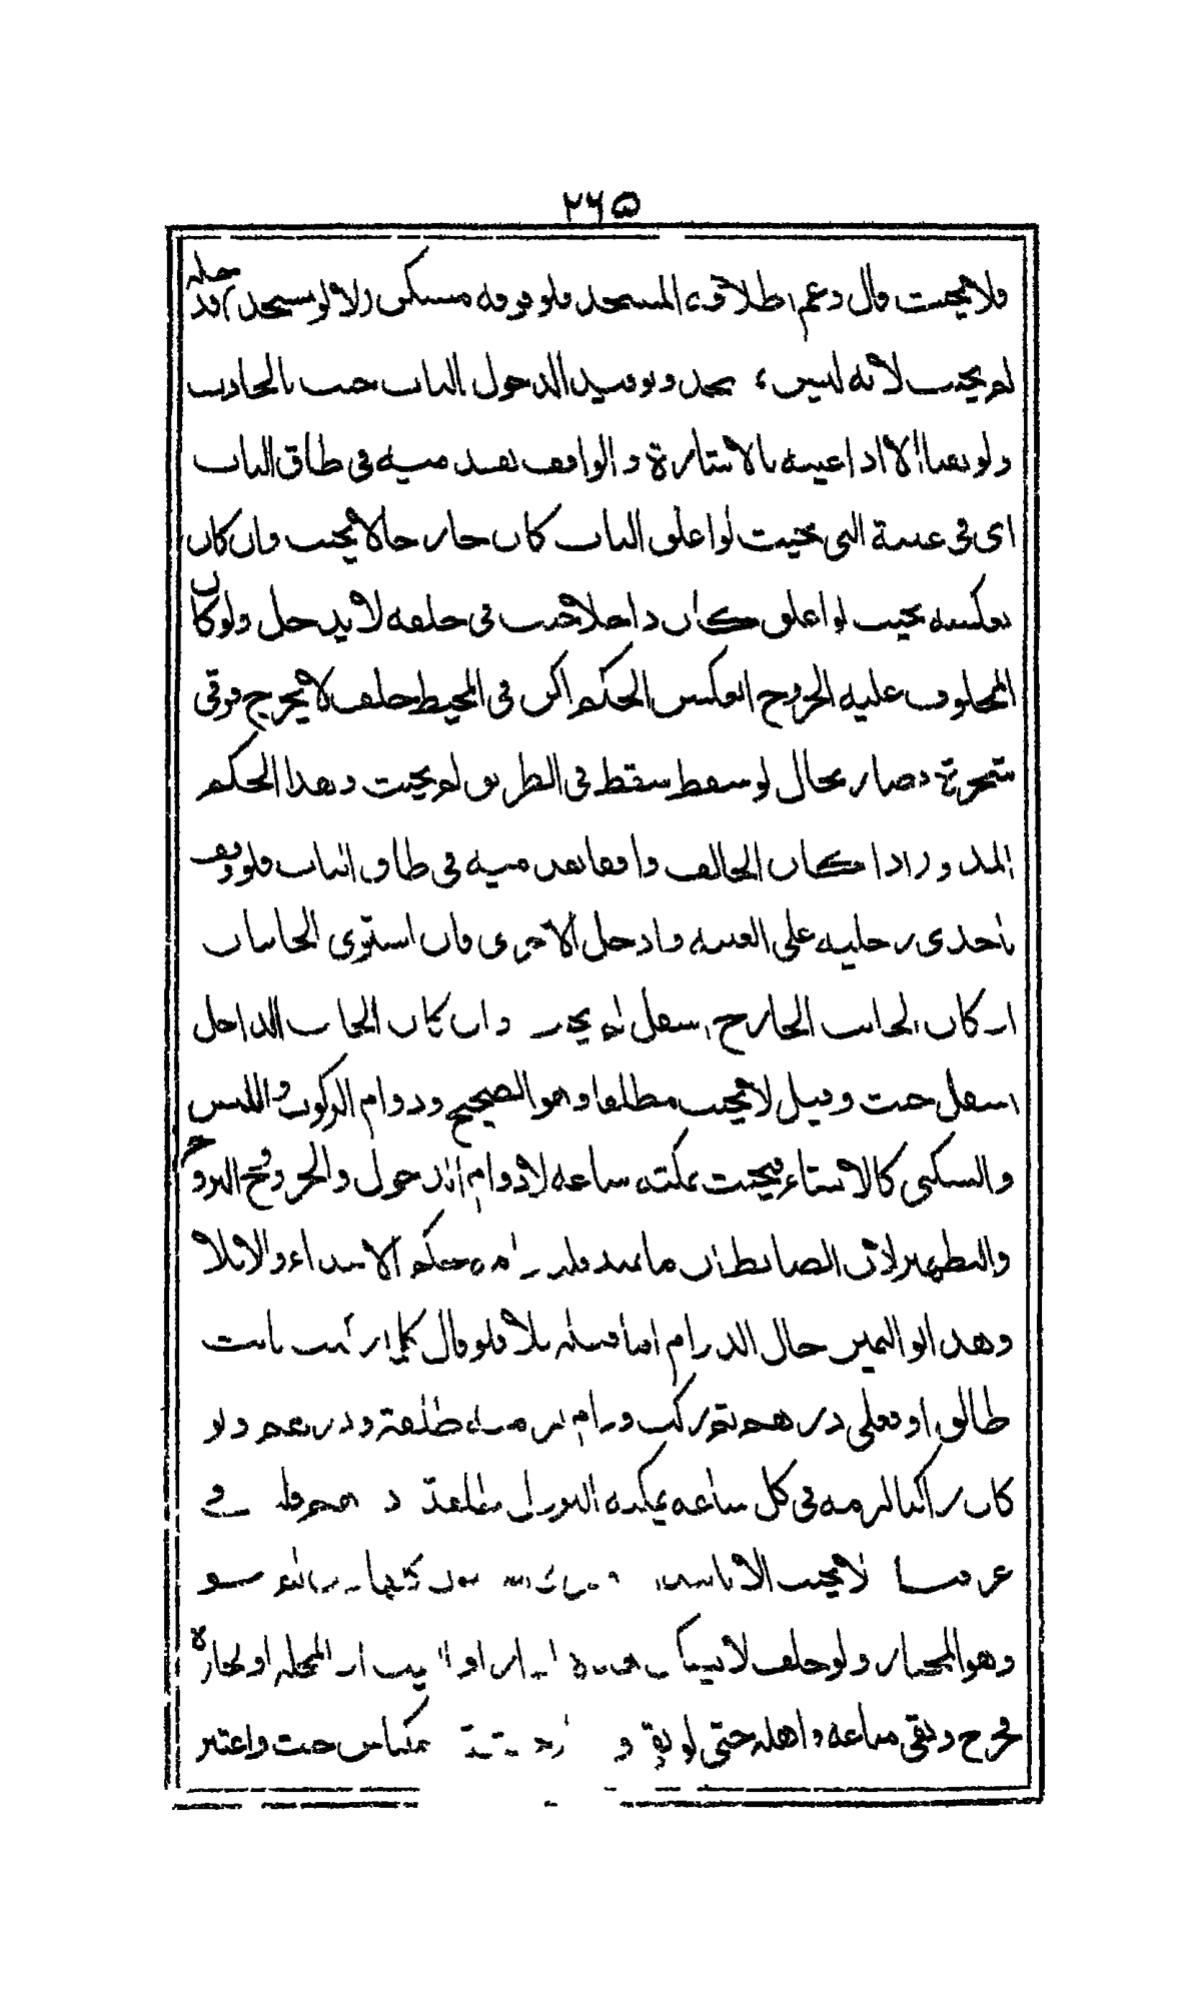 ٢٦٥
فلا يحنث قال وعم اطلاقه المسجد فلو فوقه مسكن لا لو مسجد فدخله
لم يحنث لانه ليس بمسجد ولو قيد الدخول بالباب حنث بالحادث
ولو نقبا الا اذا عينه بالاشارة والواقف بقدميه في طاق الباب
اى في عتبة التي بحيث لو اغلق الباب كان خارجا لا يحنث وان كان
بعكسه بحيث لو اغلق كان داخلا حنث في حلفه لا يدخل ولو كان
المحلوف عليه الخروج انعكس الحكم لكن في المحيط حلف لا يخرج فرقى
شجرة فصار بحال لو سقط سقط في الطريق لم يحنث وهذا الحكم
المذكور اذا كان الحالف واقفا بقدميه في طاق الباب فلو وقف
باحدى رجليه على العتبة وادخل الاخرى فان استوى الجانبان
او كان الجانب الخارج اسفل لم يحنث وان كان الجانب الداخل
اسفل حنث وقيل لا يحنث مطلقا وهو الصحيح ودوام الركوب واللبس
والسكنى كالانشاء فيحنث بمكثه ساعة لا دوام الدخول والخروج والتزوج
والتطهير لان الضابط ان ما يمتد فلدوامه حكم الابتداء والا فلا
وهذا لو اليمين حال الدوام اما قبله فلا فلو قال كلما ركبت فانت
طالق او فعلي درهم ثم ركب ودام لزمه طلقة ودرهم ولو
كان راكبا لزمه في كل ساعة يمكنه النزول طلقة ودرهم قلت في
عرفنا لا يحنث الا
وهو المختار ولو حلف لا يسكن هذه الدار او البيت او المحلة او الحارة
فخرج وبقى متاعه واهله حتى لو بقى وتد حنث واعتبر